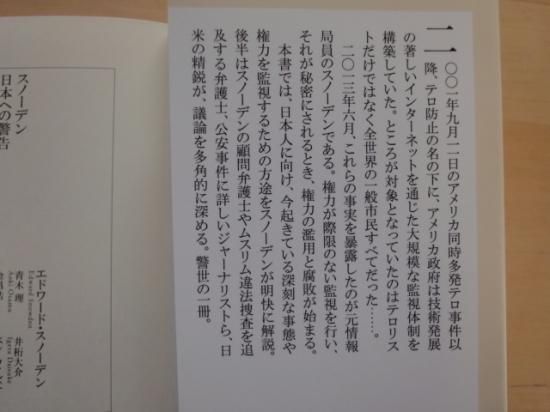 二〇〇一年九月一一日のアメリカ同時多発テロ事件以
降、テロ防止の名の下に、アメリカ政府は技術発展
の著しいインターネットを通じた大規模な監視体制を
構築していた。ところが対象となっていたのはテロリス
トだけではなく全世界の一般市民すべてだった……。
二〇一三年六月、これらの事実を暴露したのが元情報
局員のスノーデンである。権力が際限のない監視を行い、
それが秘密にされるとき、権力の濫用と腐敗が始まる。
本書では、日本人に向け、今起きている深刻な事態や
権力を監視するための方途をスノーデンが明快に解説。
後半はスノーデンの顧問弁護士やムスリム違法捜査を追
及する弁護士、公安事件に詳しいジャーナリストら、日
米の精鋭が、議論を多角的に深める。警世の一冊。
スノーデン
日本への警告
エドワード・スノーデン
Edward Snowden
青木 理
Aoki Osamu
井桁大介
Igeta Daisuke